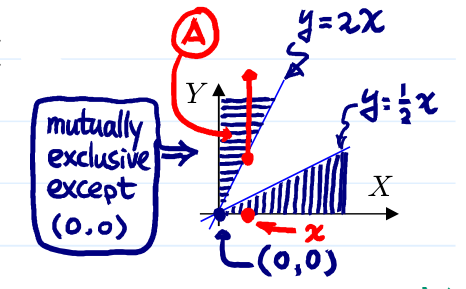 A
y=2x
Y
y=½x
mutually
exclusive
except
(0,0)
X
x
(0,0)